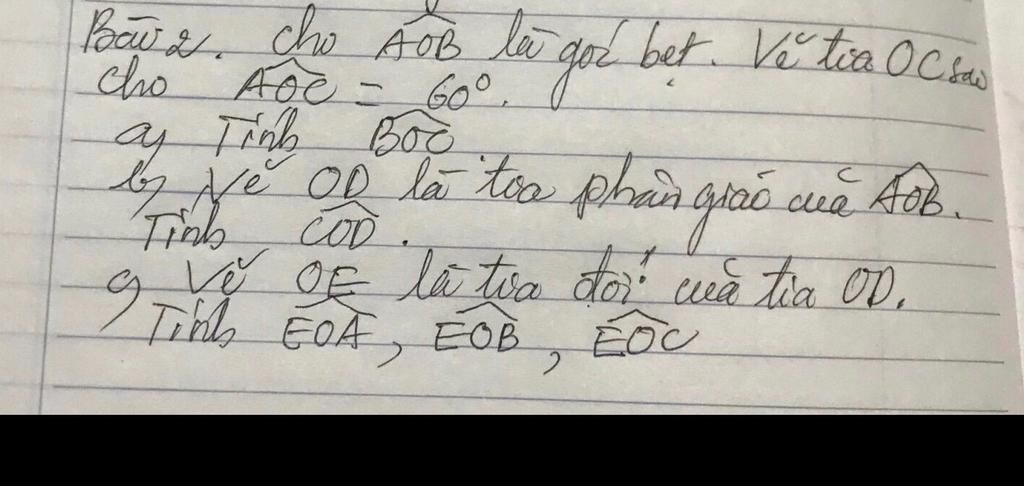 Bài 2. Cho AOB là góc bẹt. Vẽ tia OC sao
cho AOC = 60°.
a) Tính BOC.
b) Vẽ OD là tia phân giác của AOB.
Tính COD.
c) Vẽ OE là tia đối của tia OD.
Tính EOA, EOB, EOC